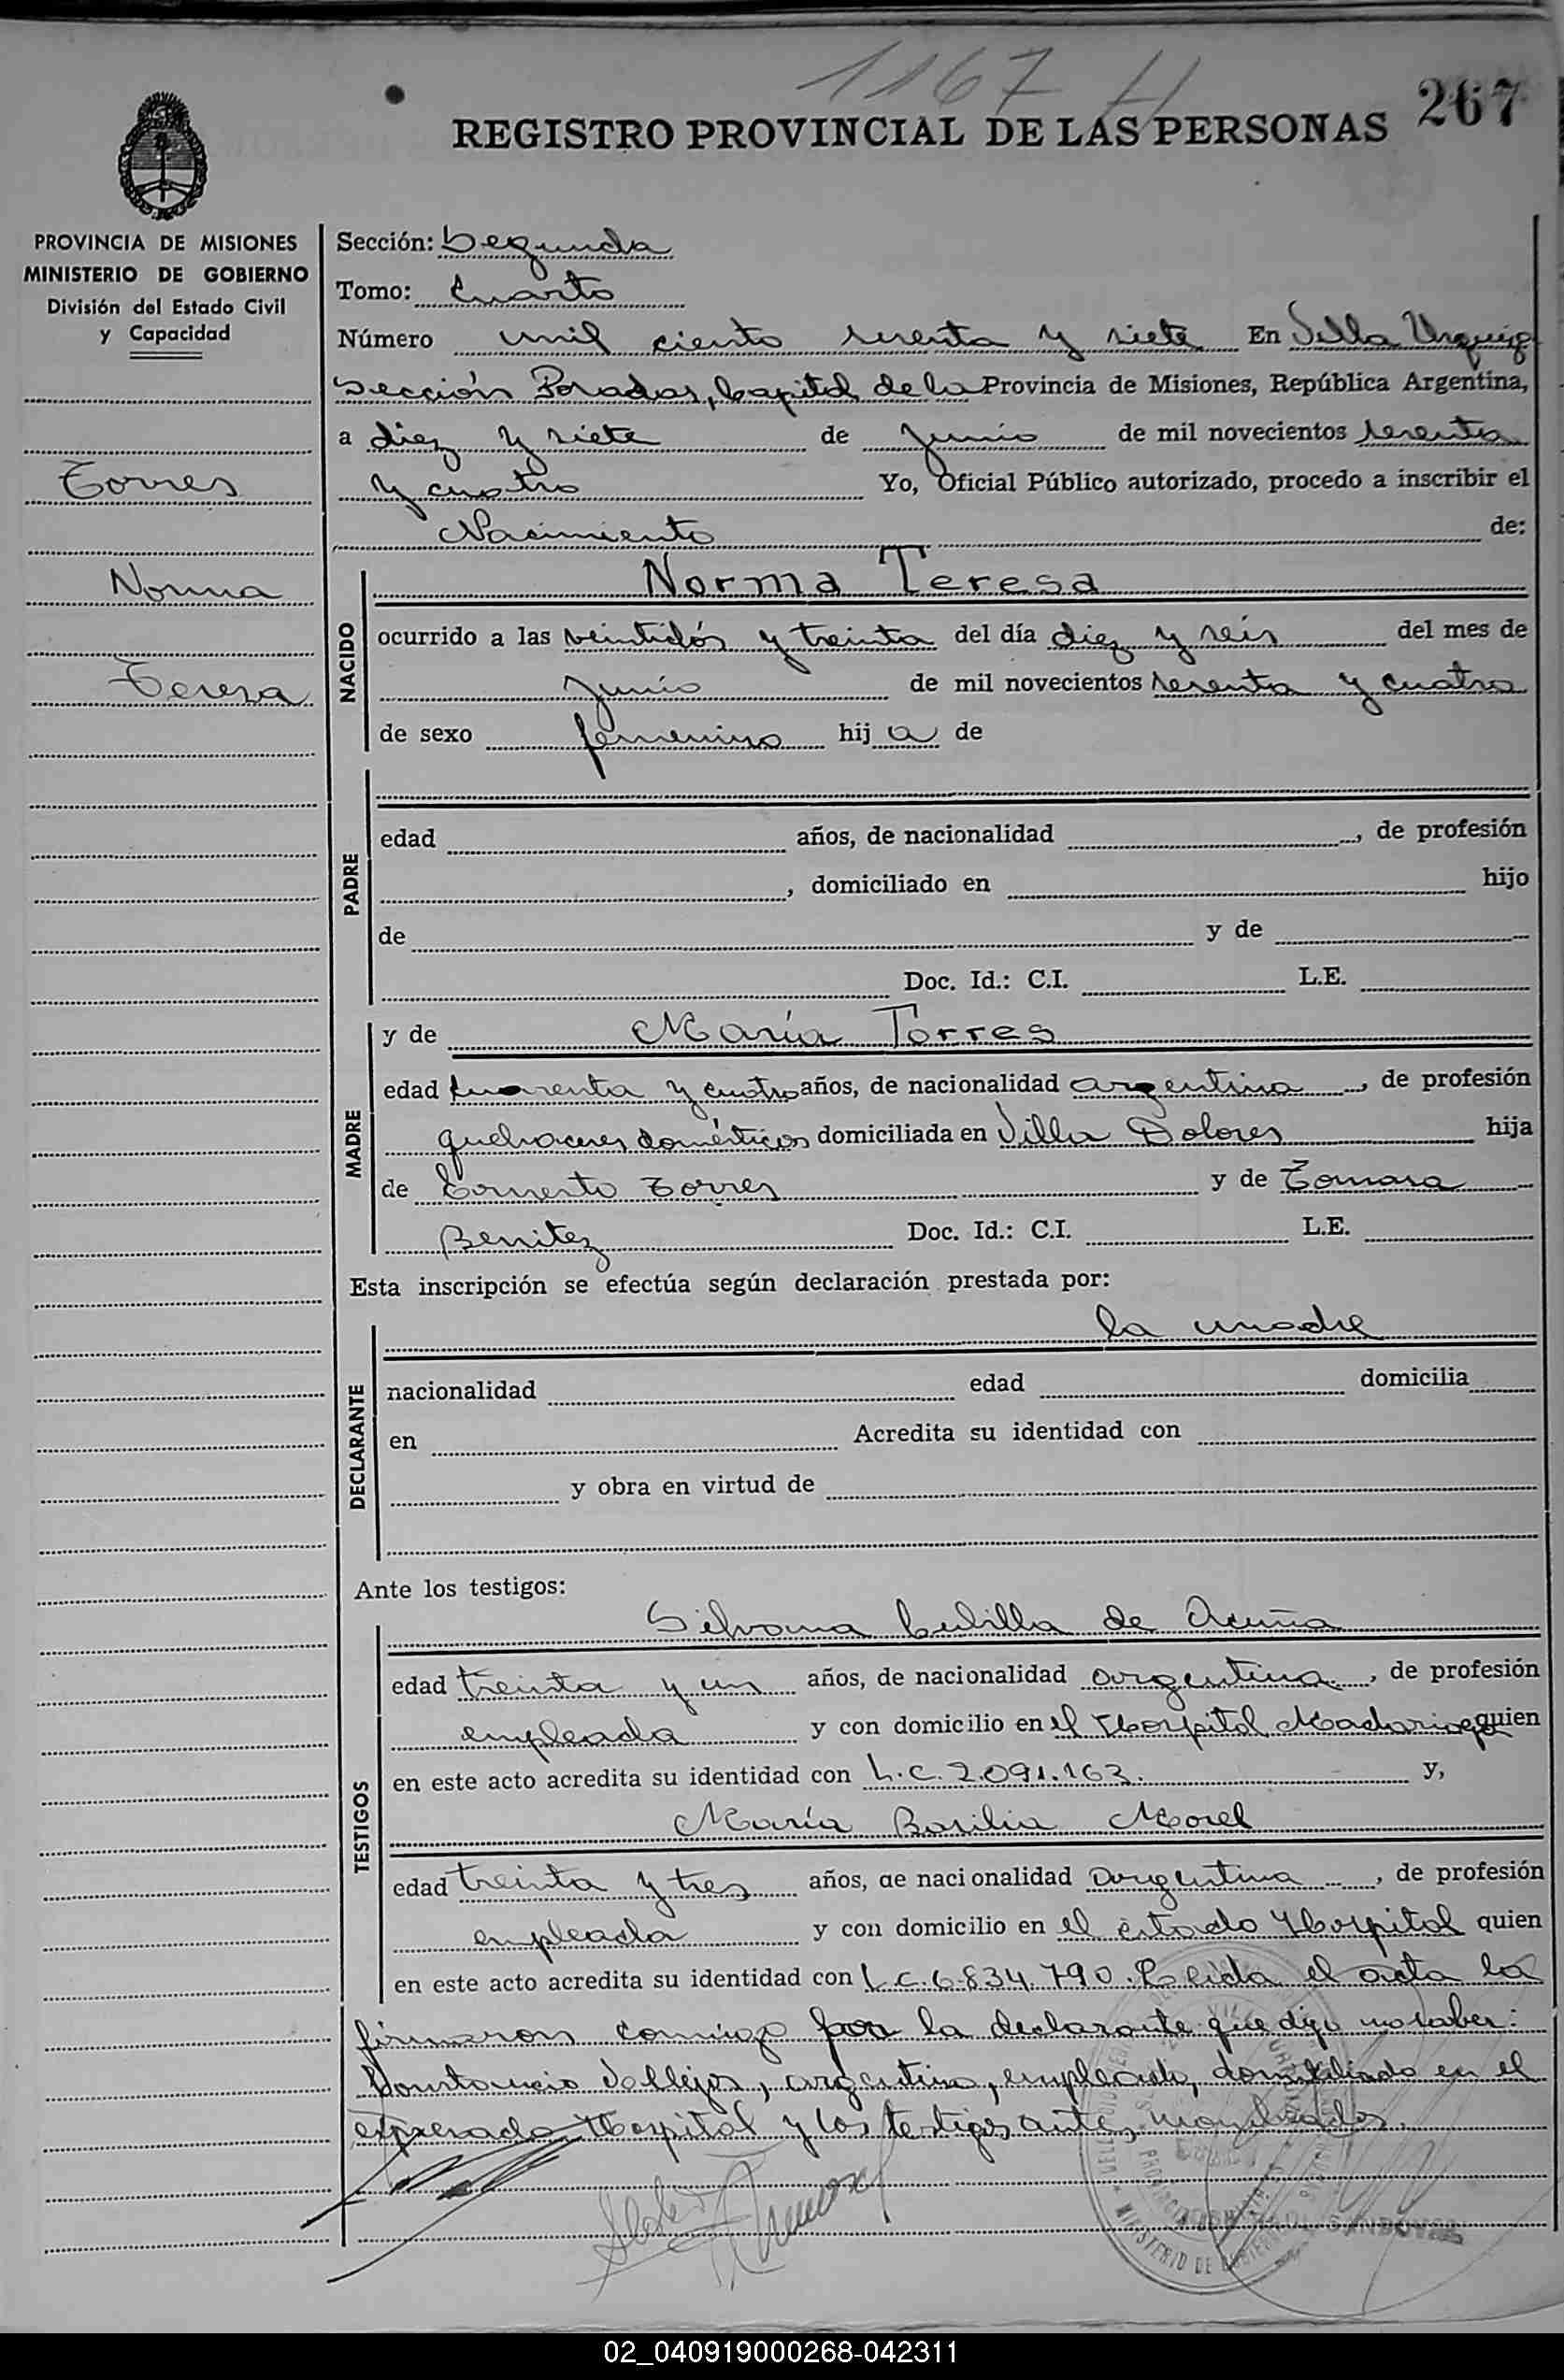 1167 H
REGISTRO PROVINCIAL DE LAS PERSONAS 267
PROVINCIA DE MISIONES
MINISTERIO DE GOBIERNO
División del Estado Civil
y Capacidad
Torres
Norma
Teresa
Sección: Segunda
Tomo: Cuarto
Número mil ciento sesenta y siete En Villa Urquiza
Sección Posadas, Capital de la Provincia de Misiones, República Argentina,
a diez y siete de junio de mil novecientos sesenta
y cuatro Yo, Oficial Público autorizado, procedo a inscribir el
Nacimiento de:
NACIDO
Norma Teresa
ocurrido a las veintidós y treinta del día diez y seis del mes de
junio de mil novecientos sesenta y cuatro
de sexo femenino hij a de
PADRE
edad años, de nacionalidad , de profesión
, domiciliado en hijo
de y de
Doc. Id.: C.I. L.E.
MADRE
y de María Torres
edad cuarenta y cuatro años, de nacionalidad argentina , de profesión
quehaceres domésticos domiciliada en Villa Dolores hija
de Ernesto Torres y de Tomasa
Benitez Doc. Id.: C.I. L.E.
Esta inscripción se efectúa según declaración prestada por:
DECLARANTE
la madre
nacionalidad edad domicilia
en Acredita su identidad con
y obra en virtud de
Ante los testigos:
TESTIGOS
Silvana de Acuña
edad treinta y un años, de nacionalidad argentina , de profesión
empleada y con domicilio en el Hospital Madariaga quien
en este acto acredita su identidad con L.C. 2.091.163. y,
María Basilia Morel
edad treinta y tres años, de nacionalidad argentina , de profesión
empleada y con domicilio en el citado Hospital quien
en este acto acredita su identidad con L.C. 6.834.790. Leída el acta la
firmaron conmigo por la declarante que dijo no saber:
Constancio Vallejos, argentino, empleado, domiciliado en el
expresado Hospital y los testigos antes nombrados.
SANDOVAL
MINISTERIO DE GOBIERNO
02_040919000268-042311